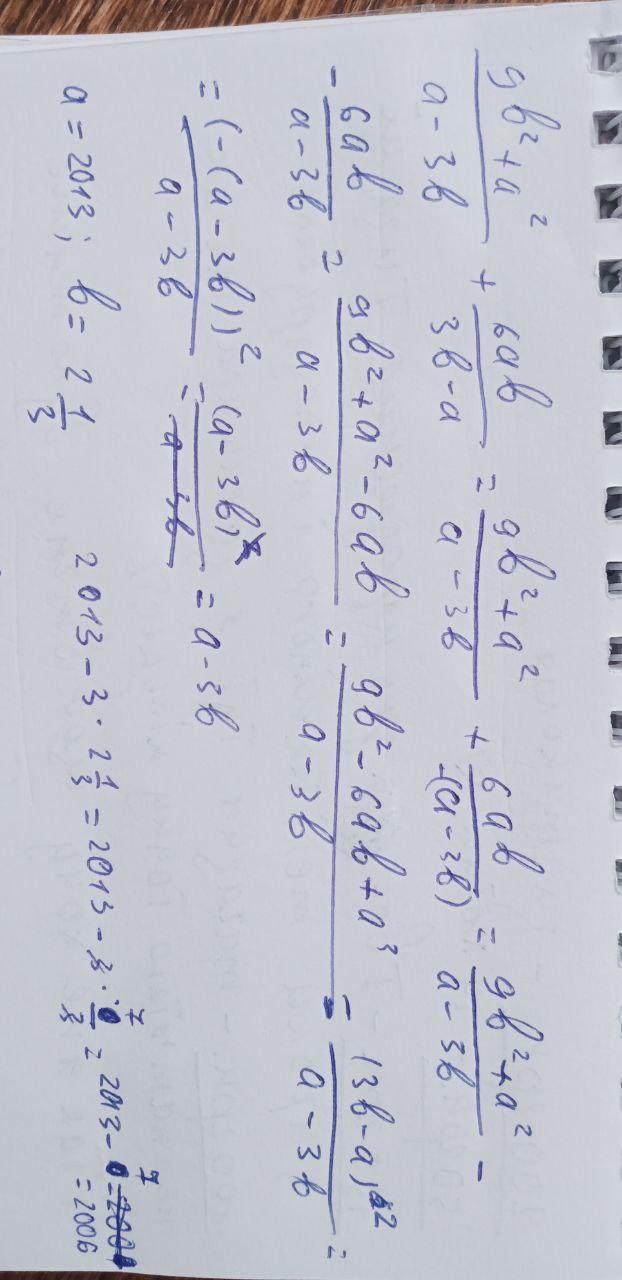 (9b²+a²)/(a-3b) + 6ab/(3b-a) = (9b²+a²)/(a-3b) + 6ab/(-(a-3b)) = (9b²+a²)/(a-3b) -
- 6ab/(a-3b) = (9b²+a²-6ab)/(a-3b) = (9b²-6ab+a³)/(a-3b) = (3b-a)²/(a-3b) =
= (-(a-3b))²/(a-3b) = (a-3b)²/(a-3b) = a-3b
a = 2013; b = 2 1/3 2013 - 3 · 2 1/3 = 2013 - 3 · 7/3 = 2013 - 7
= 2006